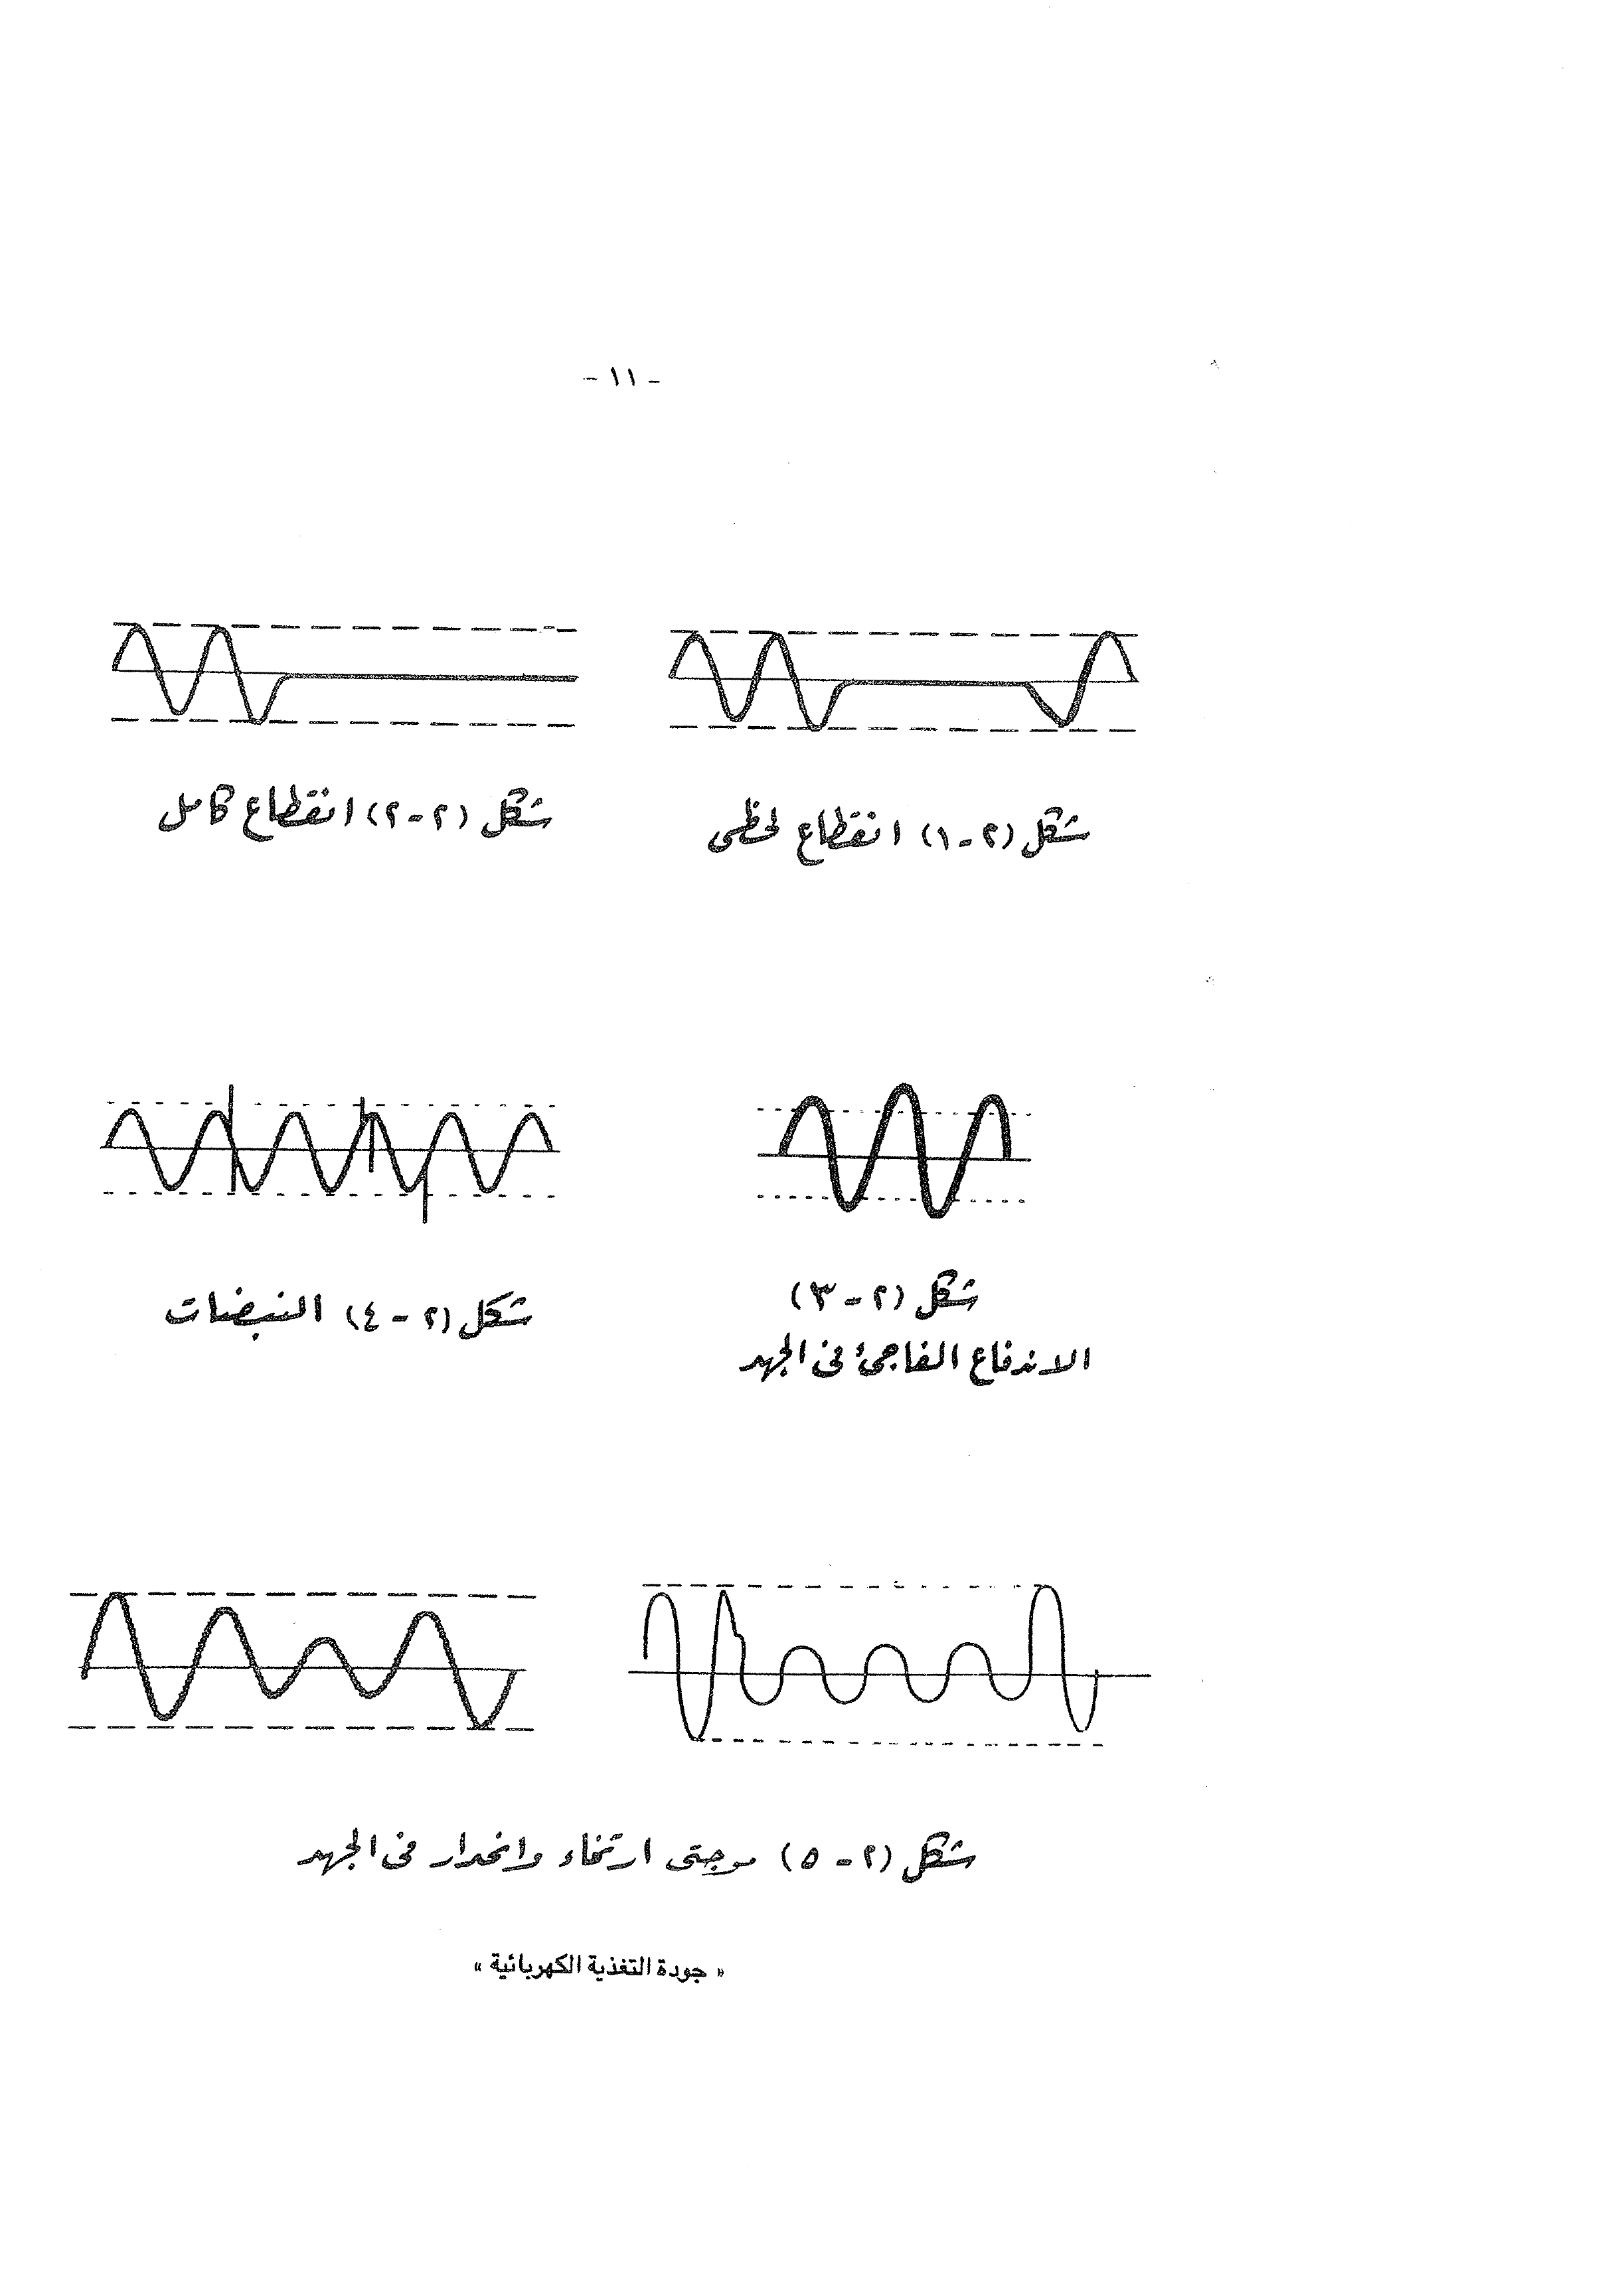 - ١١ -
شكل (٢-١) انقطاع لحظى
شكل (٢-٢) انقطاع كامل
شكل (٢-٣)
الاندفاع الفاجئ فى الجهد
شكل (٢-٤) النبضات
شكل (٢-٥) موجتى ارتخاء وانحدار فى الجهد
« جودة التغذية الكهربائية »